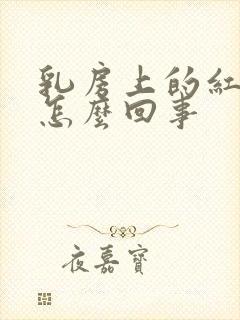 乳房上的紅
怎麼回事
夜嘉寶